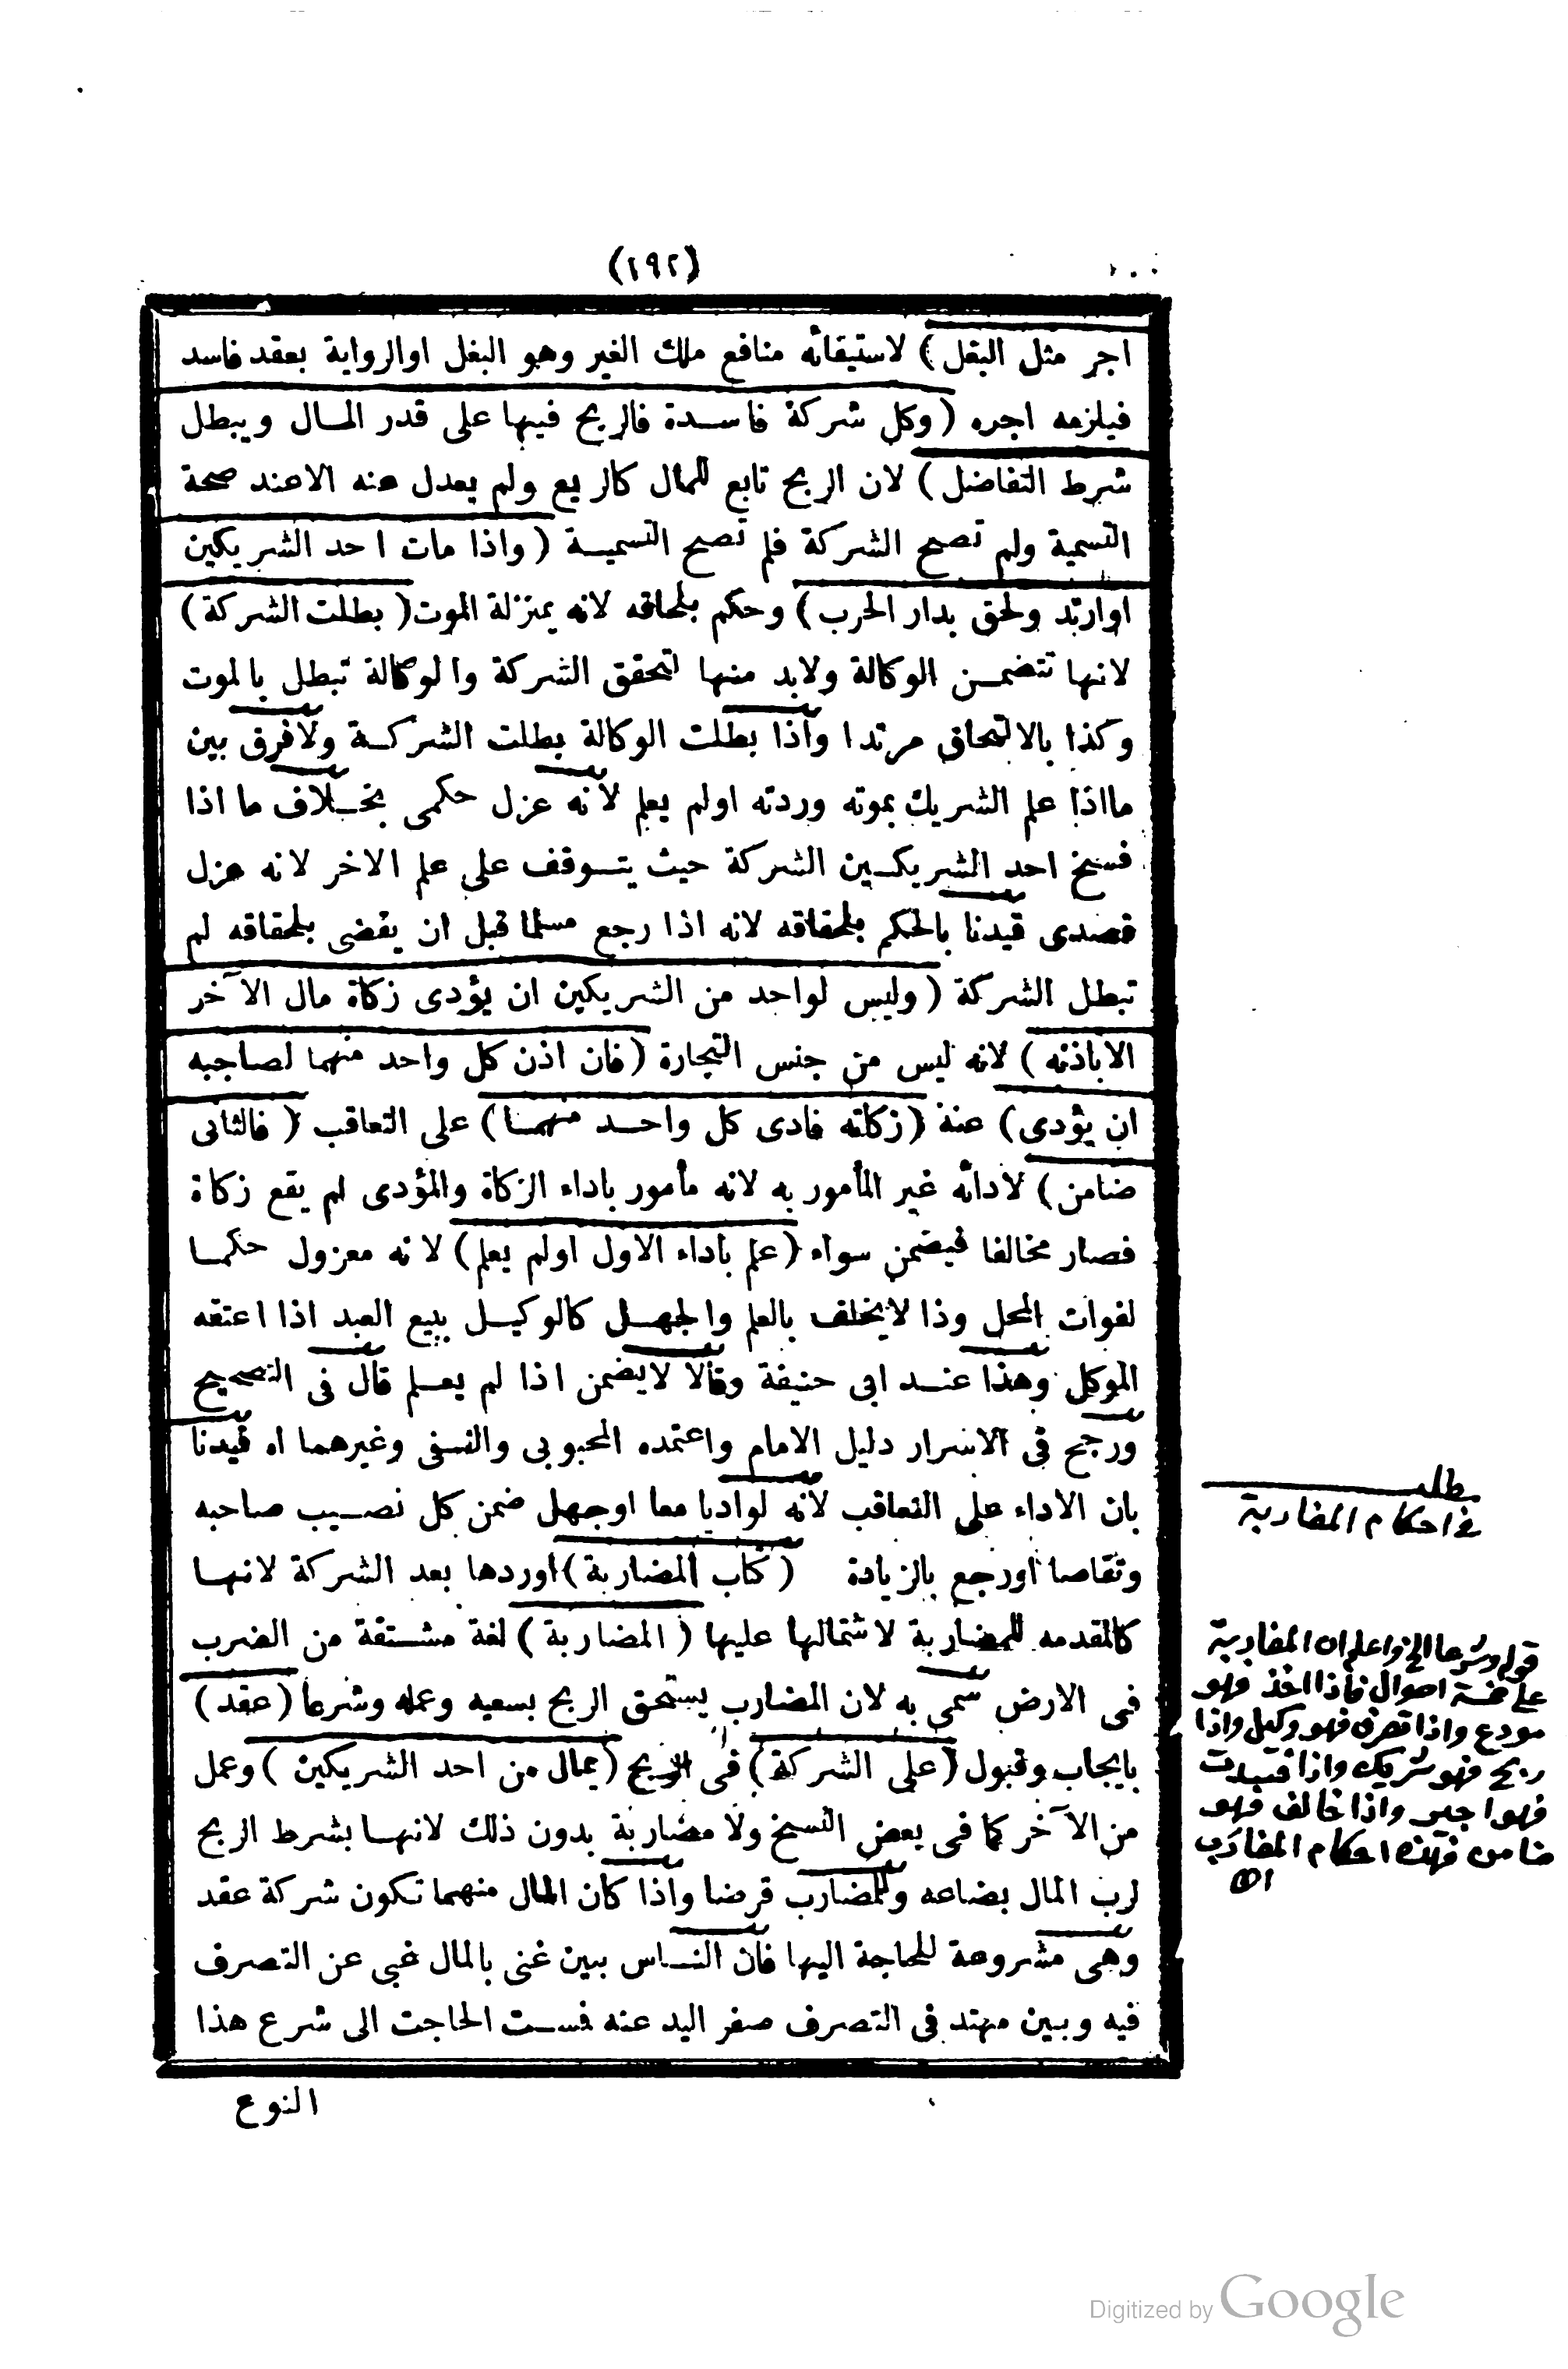 (١٩٢)
اجر مثل البغل) لاستيفائه منافع ملك الغير وهو البغل اوالرواية بعقد فاسد
فيلزمه اجره (وكل شركة فاسدة فالربح فيها على قدر المال ويبطل
شرط التفاضل) لان الربح تابع للمال كالريع ولم يعدل عنه الاعند صحة
التسمية ولم تصح الشركة فلم تصح التسمية (واذا مات احد الشريكين
اوارتد ولحق بدار الحرب) وحكم بلحاقه لانه بمنزلة الموت (بطلت الشركة)
لانها تتضمن الوكالة ولابد منها لتحقق الشركة والوكالة تبطل بالموت
وكذا بالالتحاق مرتدا واذا بطلت الوكالة بطلت الشركة ولافرق بين
مااذا علم الشريك بموته وردته اولم يعلم لانه عزل حكمى بخلاف ما اذا
فسخ احد الشريكين الشركة حيث يتوقف على علم الاخر لانه عزل
قصدى قيدنا بالحكم بلحقاقه لانه اذا رجع مسلما قبل ان يقضى بلحقاقه لم
تبطل الشركة (وليس لواحد من الشريكين ان يؤدى زكاة مال الآخر
الاباذنه) لانه ليس من جنس التجارة (فان اذن كل واحد منهما لصاحبه
ان يؤدى) عنه (زكاته فادى كل واحد منهما) على التعاقب (فالثانى
ضامن) لادائه غير المأمور به لانه مأمور باداء الزكاة والمؤدى لم يقع زكاة
فصار مخالفا فيضمن سواء (علم باداء الاول اولم يعلم) لانه معزول حكما
لفوات المحل وذا لايختلف بالعلم والجهل كالوكيل ببيع العبد اذا اعتقه
الموكل وهذا عند ابى حنيفة وقالا لايضمن اذا لم يعلم قال فى التصحيح
ورجح فى الاسرار دليل الامام واعتمده المحبوبى والنسفى وغيرهما اه قيدنا
بان الاداء على التعاقب لانه لواديا معا اوجهل ضمن كل نصيب صاحبه
وتقاصا اورجع بالزيادة (كتاب المضاربة) اوردها بعد الشركة لانها
كالمقدمه للمضاربة لاشتمالها عليها (المضاربة) لغة مشتقة من الضرب
فى الارض سمى به لان المضارب يستحق الربح بسعيه وعمله وشرعا (عقد)
بايجاب وقبول (على الشركة) فى الربح (بمال من احد الشريكين) وعمل
من الآخر كما فى بعض النسخ ولا مضاربة بدون ذلك لانها بشرط الربح
لرب المال بضاعه وللمضارب قرضا واذا كان المال منهما تكون شركة عقد
وهى مشروعة للحاجة اليها فان الناس بين غنى بالمال غبى عن التصرف
فيه وبين مهتد فى التصرف صفر اليد عنه فست الحاجت الى شرع هذا
النوع
مطلب
فى احكام المضاربة
قوله وشرعا الخ واعلم ان المضاربة
على خمسة احوال فاذا اخذ فهو
مودع واذا تصرف فهو وكيل واذا
ربح فهو شريك واذا فسدت
فهو اجير واذا خالف فهو
ضامن فهذه احكام المضارب
Digitized by Google